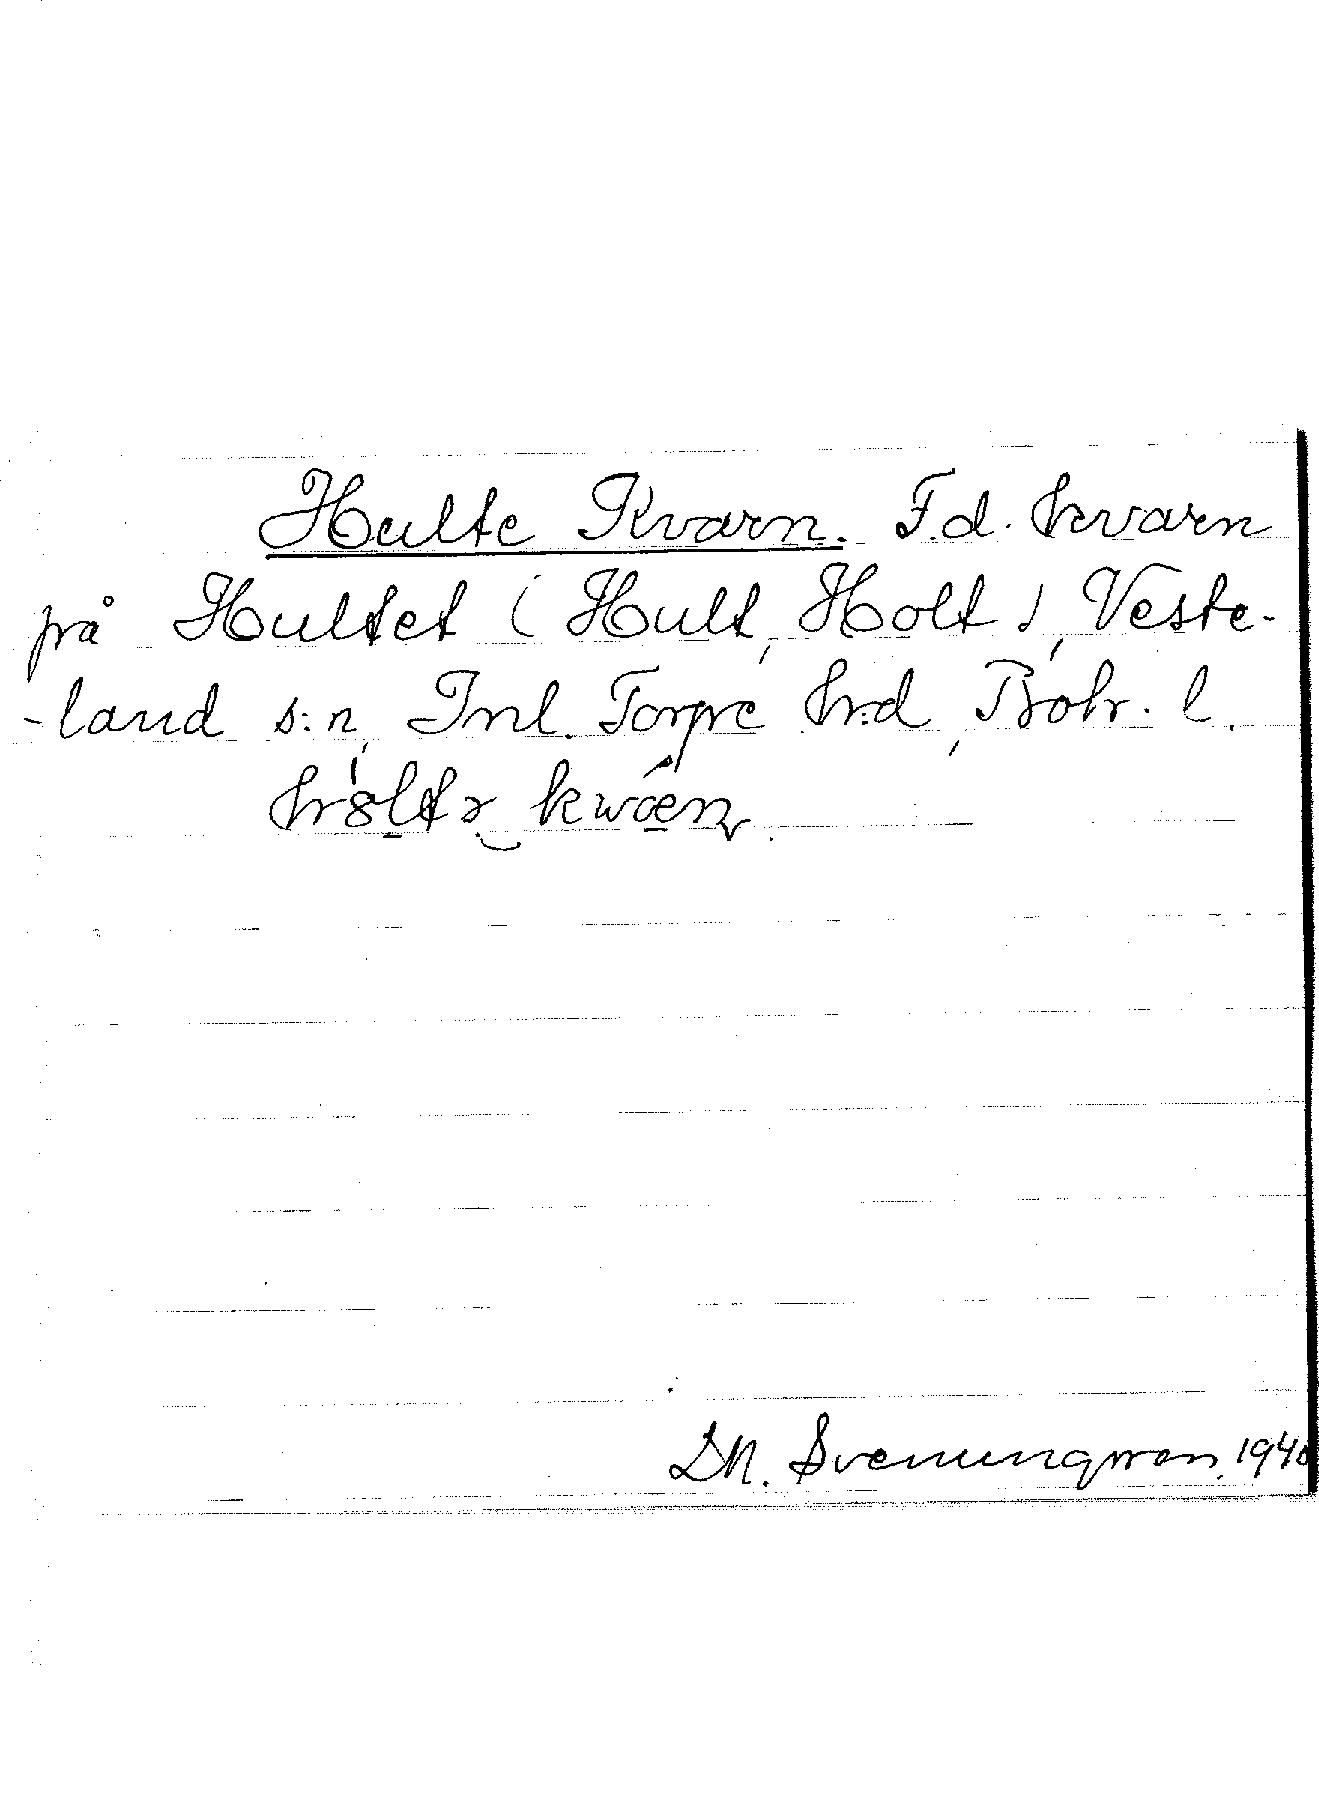 Hulte Kvarn. F.d. kvarn
på Hultet (Hult, Holt), Veste-
-land s:n, Inl. Torpe h:d, Boh. l.
D.N. Svenungsson, 1940